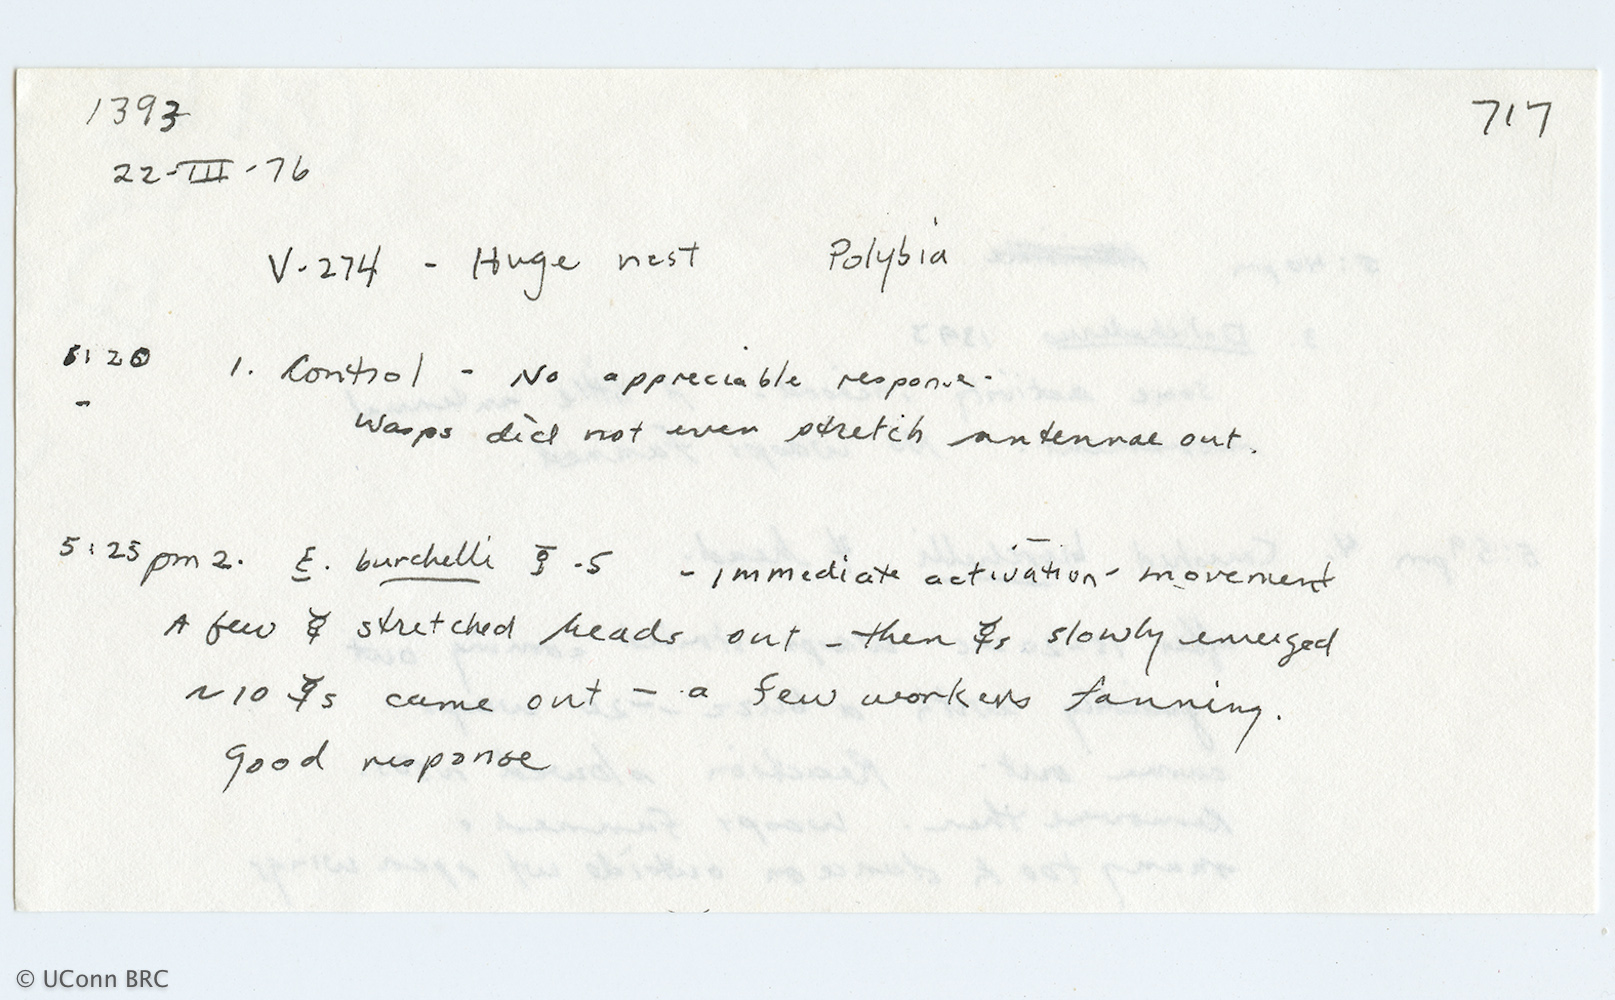 1393
717
22-III-76
V-274 - Huge nest Polybia
5:20 1. Control - No appreciable response.
- Wasps did not even stretch antennae out.
5:25 pm 2. E. burchelli ☿ .5 - immediate activation - movement
A few ☿ stretched heads out - then ☿s slowly emerged
~10 ☿s came out - a few workers fanning.
Good response
© UConn BRC